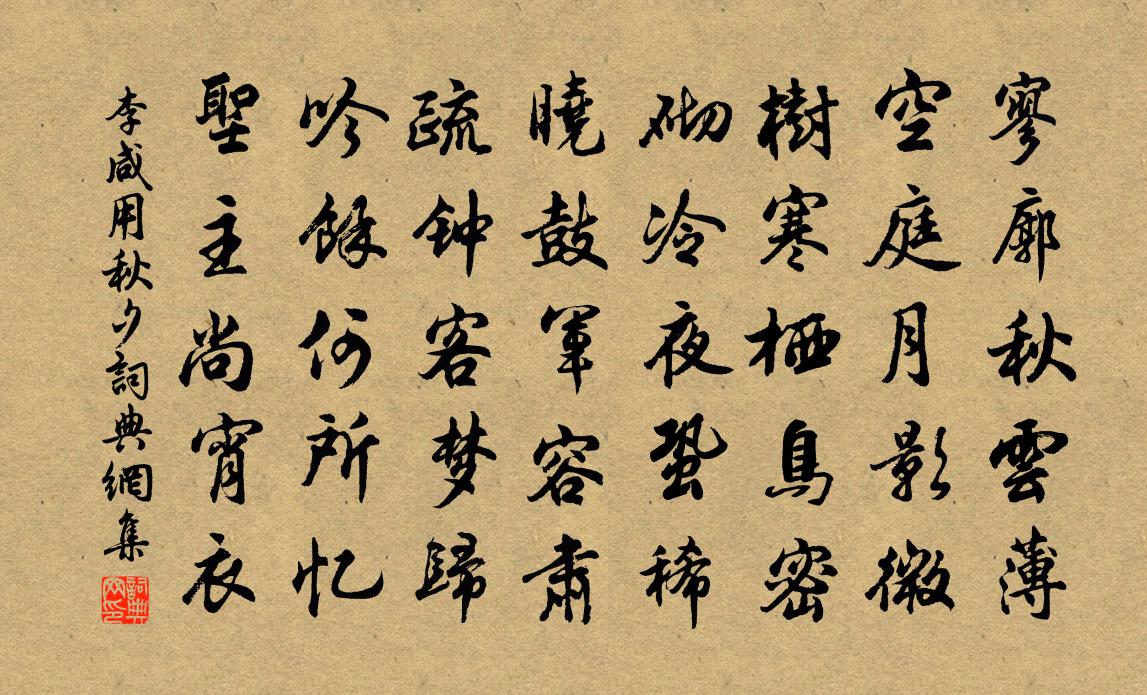 寥廓秋雲薄
空庭月影微
樹寒栖鳥密
砌冷夜蛩稀
曉鼓軍容肅
疏钟客梦歸
吟餘何所忆
聖主尚宵衣
李咸用秋夕詞典網集
詞典
网印